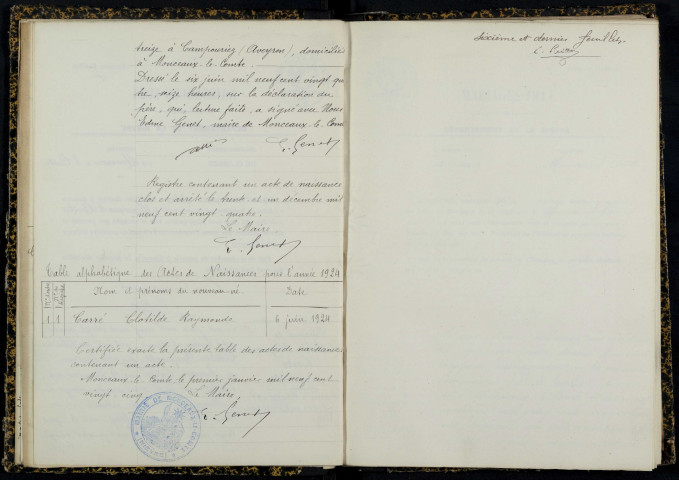 treize à Campouriez (Aveyron), domiciliés
à Monceaux-le-Comte.
Dressé le six juin mil neuf cent vingt qua
tre, seize heures, sur la déclaration du
père, qui, lecture faite, a signé avec Nous
Edmé Genet, maire de Monceaux-le-Comte
E. Genet
Registre contenant un acte de naissances
clos et arrêté le trente et un décembre mil
neuf cent vingt-quatre.
Le Maire
E. Genet
Table alphabétique des Actes de Naissances pour l'année 1924
Nom et prénoms du nouveau-né
Date
1 1 Carré Clotilde Raymonde 6 juin 1924
Certifiée exacte la présente table des actes de naissances
contenant un acte.
Monceaux-le-Comte, le premier janvier mil neuf cent
vingt cinq
Le Maire,
E. Genet
Sixième et dernier feuillet